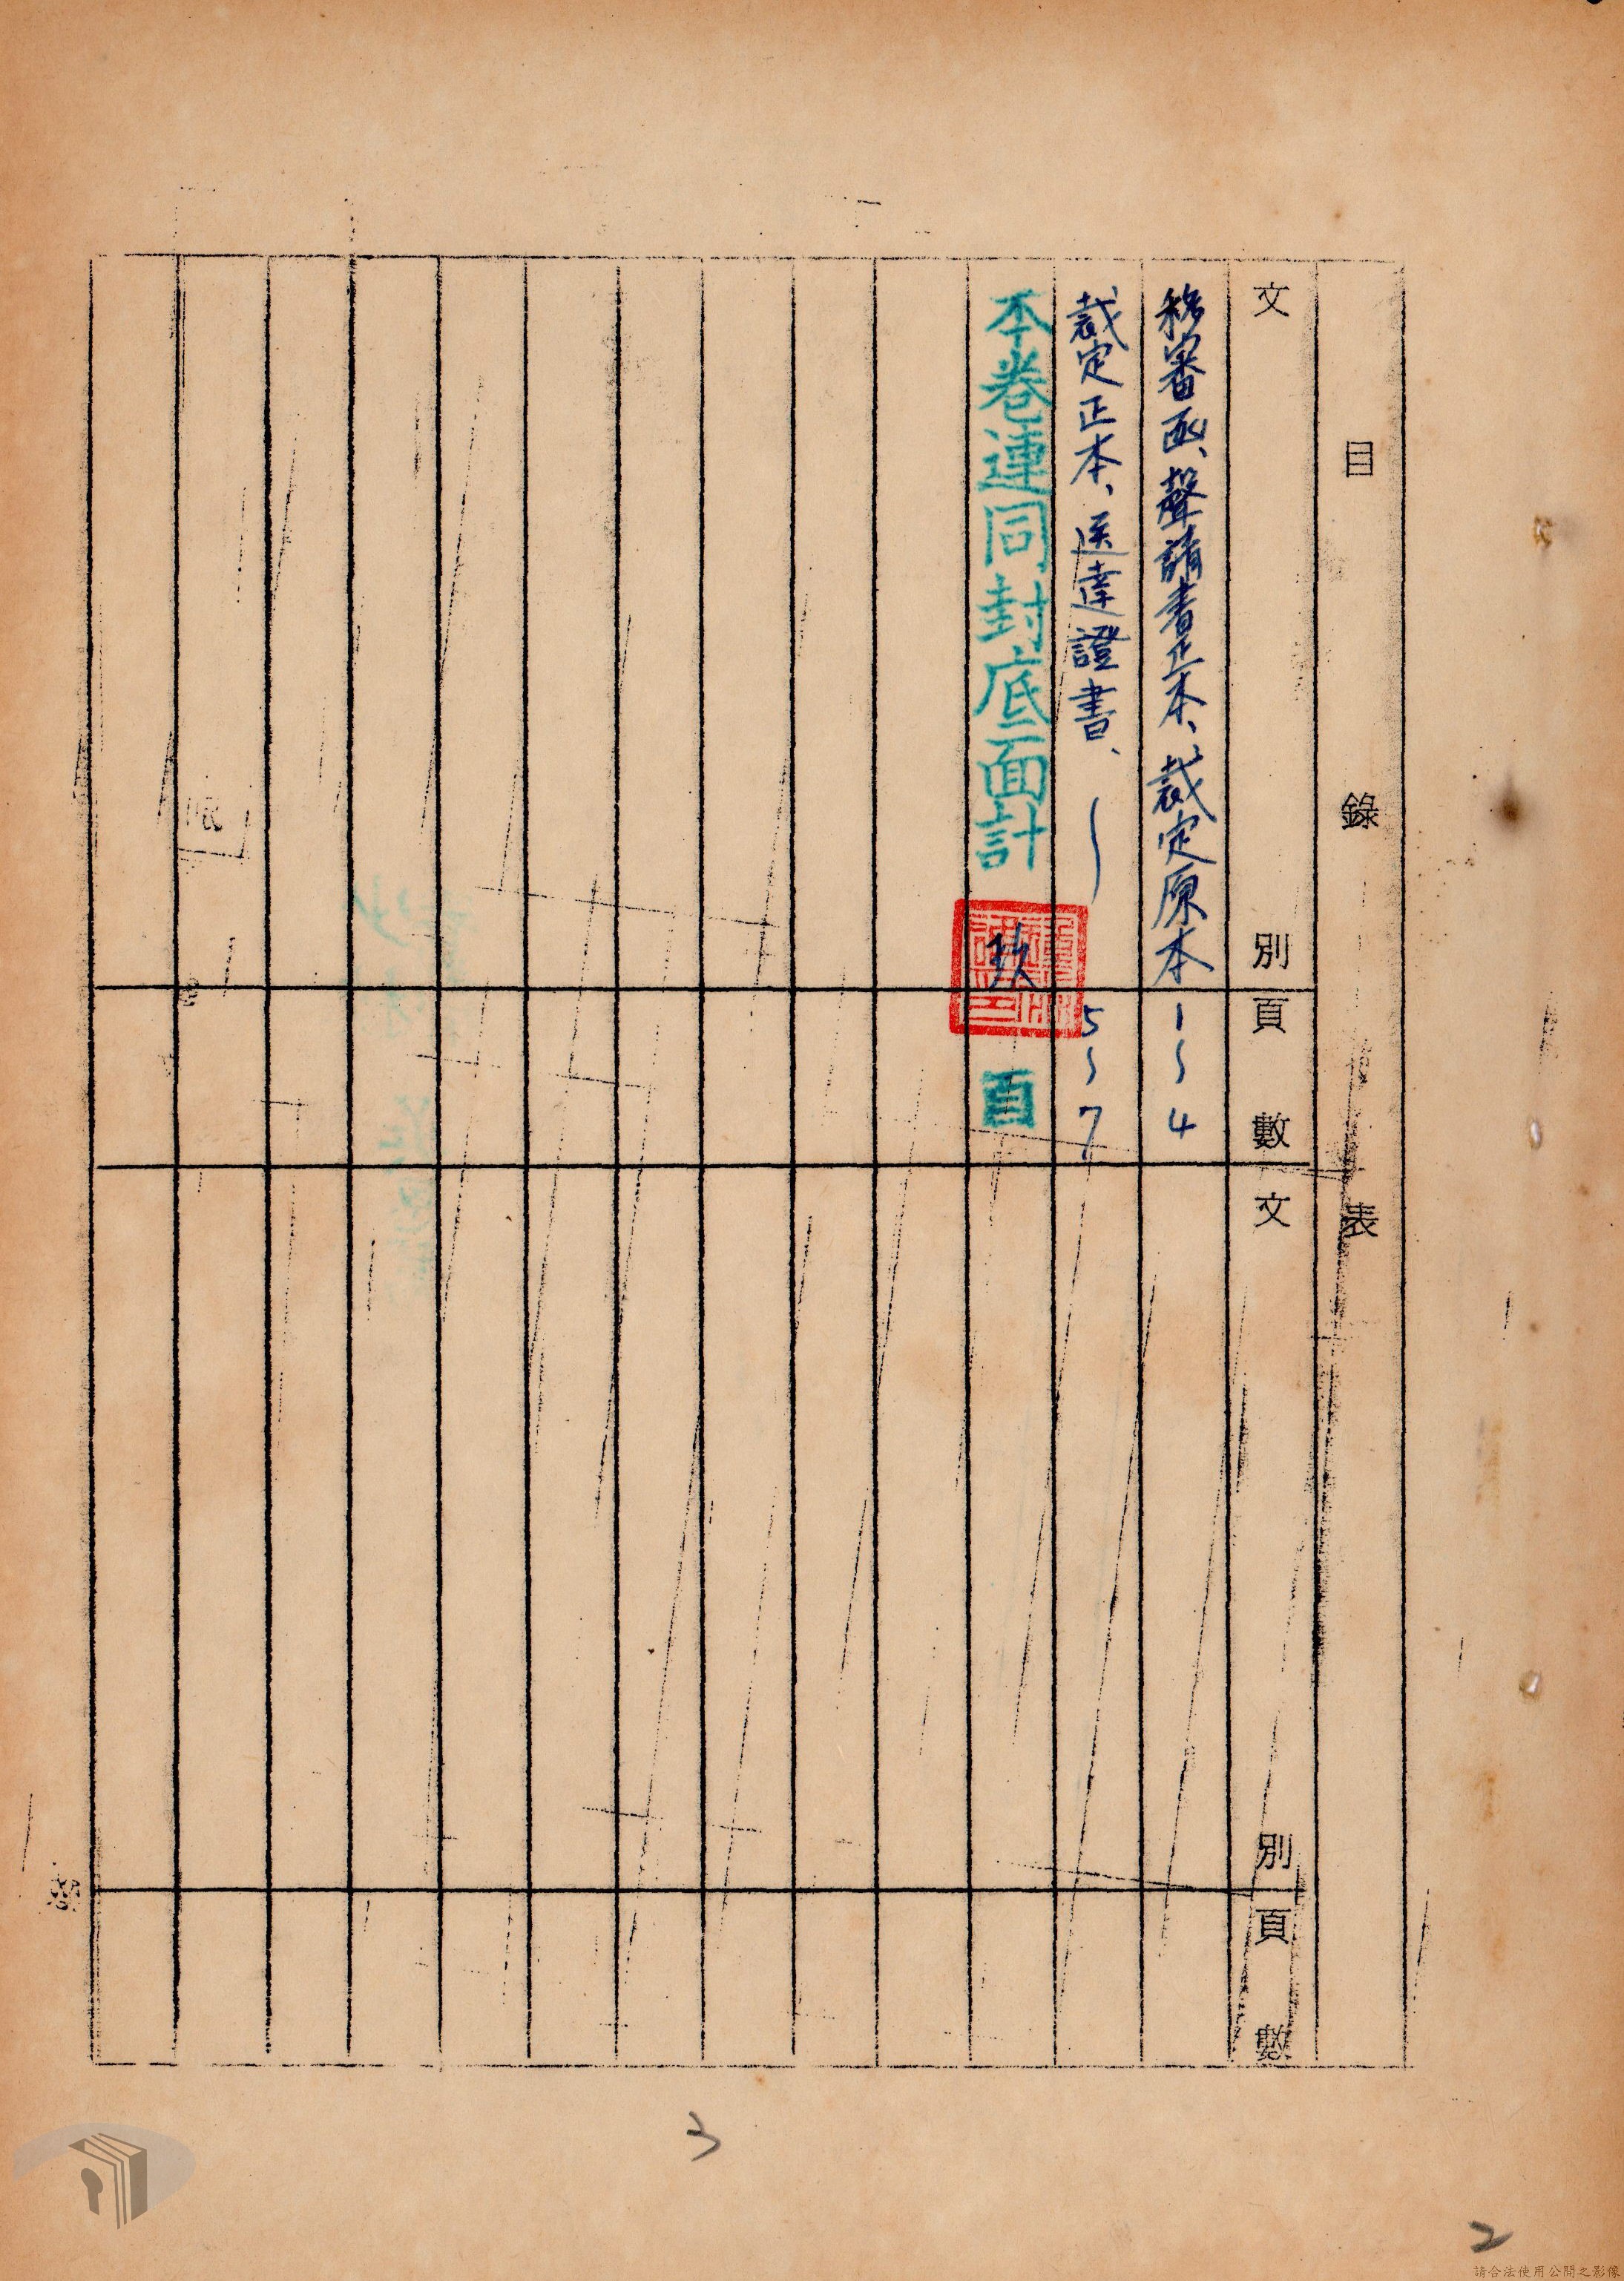 目錄表
文別 頁數 文別 頁數
移審函、聲請書正本、裁定原本 1～4
裁定正本、送達證書、 5～7
本卷連同封底面計 玖 頁
3
2
請合法使用公開之影像